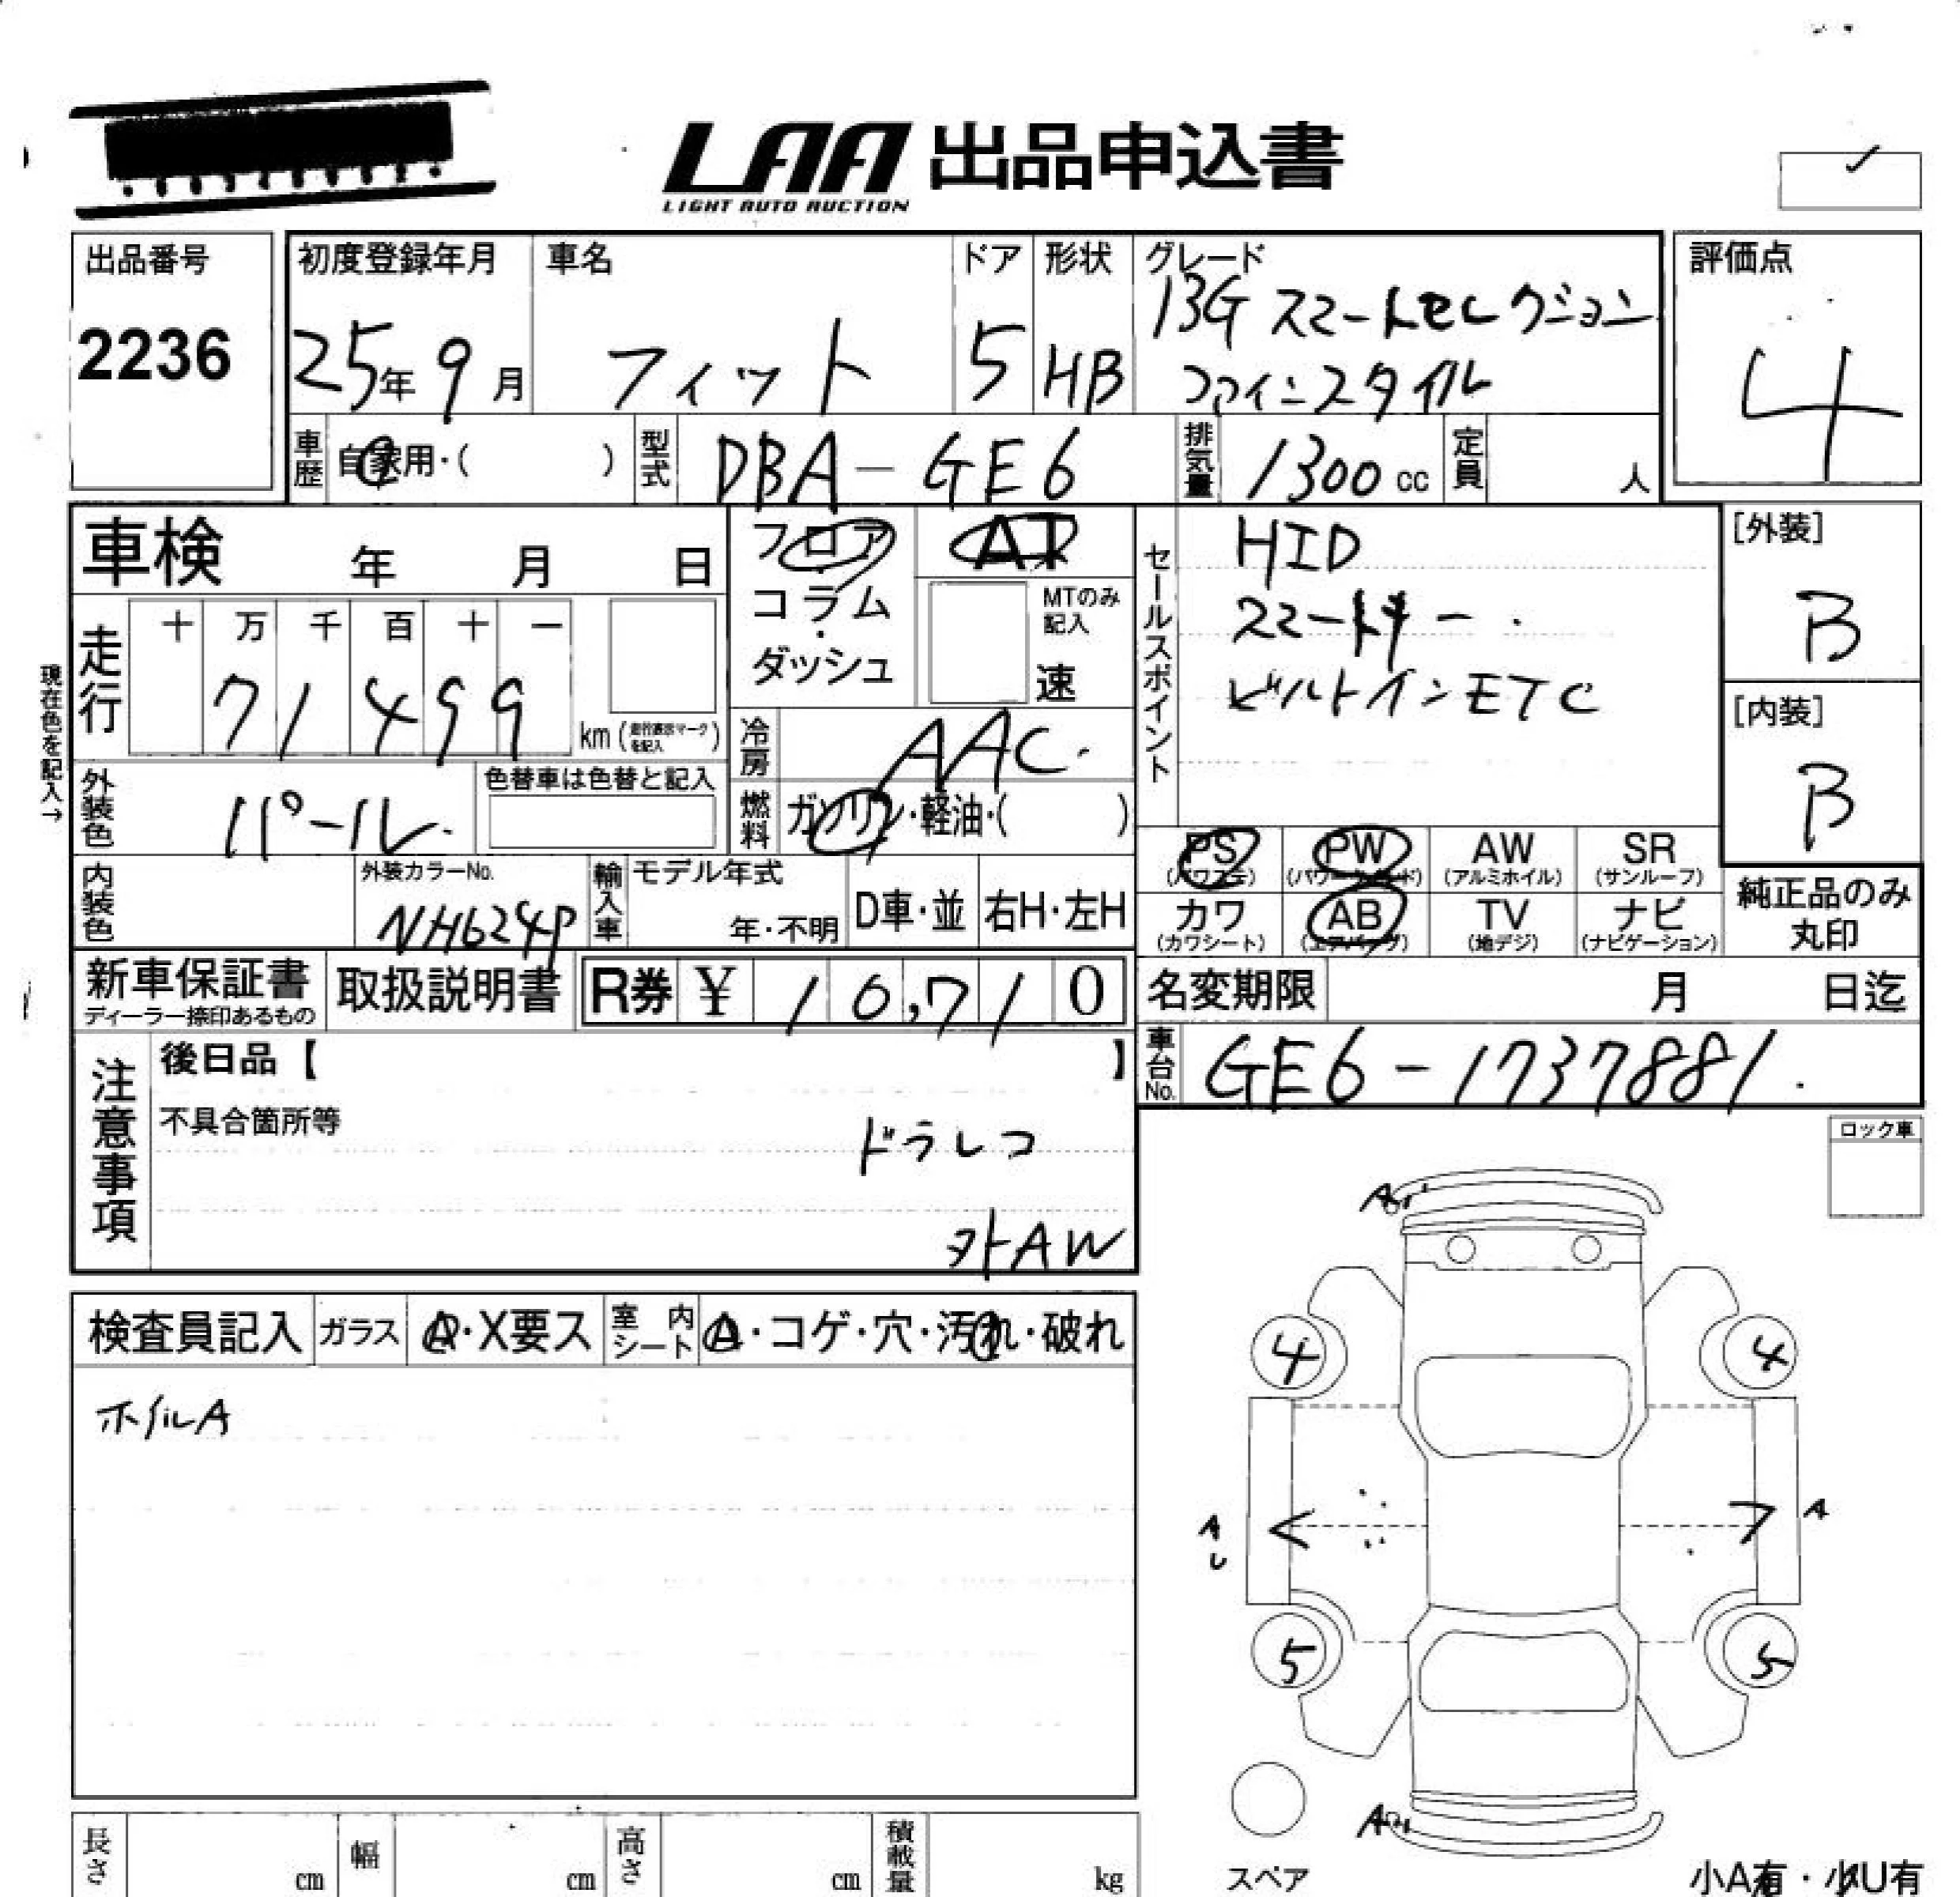 LAA 出品申込書
LIGHT AUTO AUCTION
出品番号
2236
初度登録年月
25年9月
車名
フィット
ドア
5
形状
HB
グレード
13G スマートセレクション
ファインスタイル
評価点
4
車歴
自家用・( )
型式
DBA-GE6
排気量
1300cc
定員
人
車検 年 月 日
フロア・コラム・ダッシュ
AT
MTのみ記入
速
セールスポイント
HID
スマートキー
ビルトインETC
[外装]
B
[内装]
B
現在色を記入→
走行
十 万 千 百 十 一
71499
km
冷房
AAC
外装色
パール
色替車は色替と記入
燃料
ガソリン・軽油・( )
内装色
外装カラーNo.
NH624P
輸入車
モデル年式
年・不明
D車・並
右H・左H
PS
(パワステ)
PW
(パワーウインド)
AW
(アルミホイル)
SR
(サンルーフ)
カワ
(カワシート)
AB
(エアバッグ)
TV
(地デジ)
ナビ
(ナビゲーション)
純正品のみ
丸印
新車保証書
ディーラー捺印あるもの
取扱説明書
R券 ¥ 10,710
名変期限 月 日迄
車台No.
GE6-1737881
注意事項
後日品【 】
不具合箇所等
ドラレコ
外AW
ロック車
検査員記入
ガラス
A・X要ス
室内シート
A・コゲ・穴・汚れ・破れ
ホイルA
A
4
4
A
A
5
5
A
スペア
小A有・小U有
長さ cm
幅 cm
高さ cm
積載量 kg